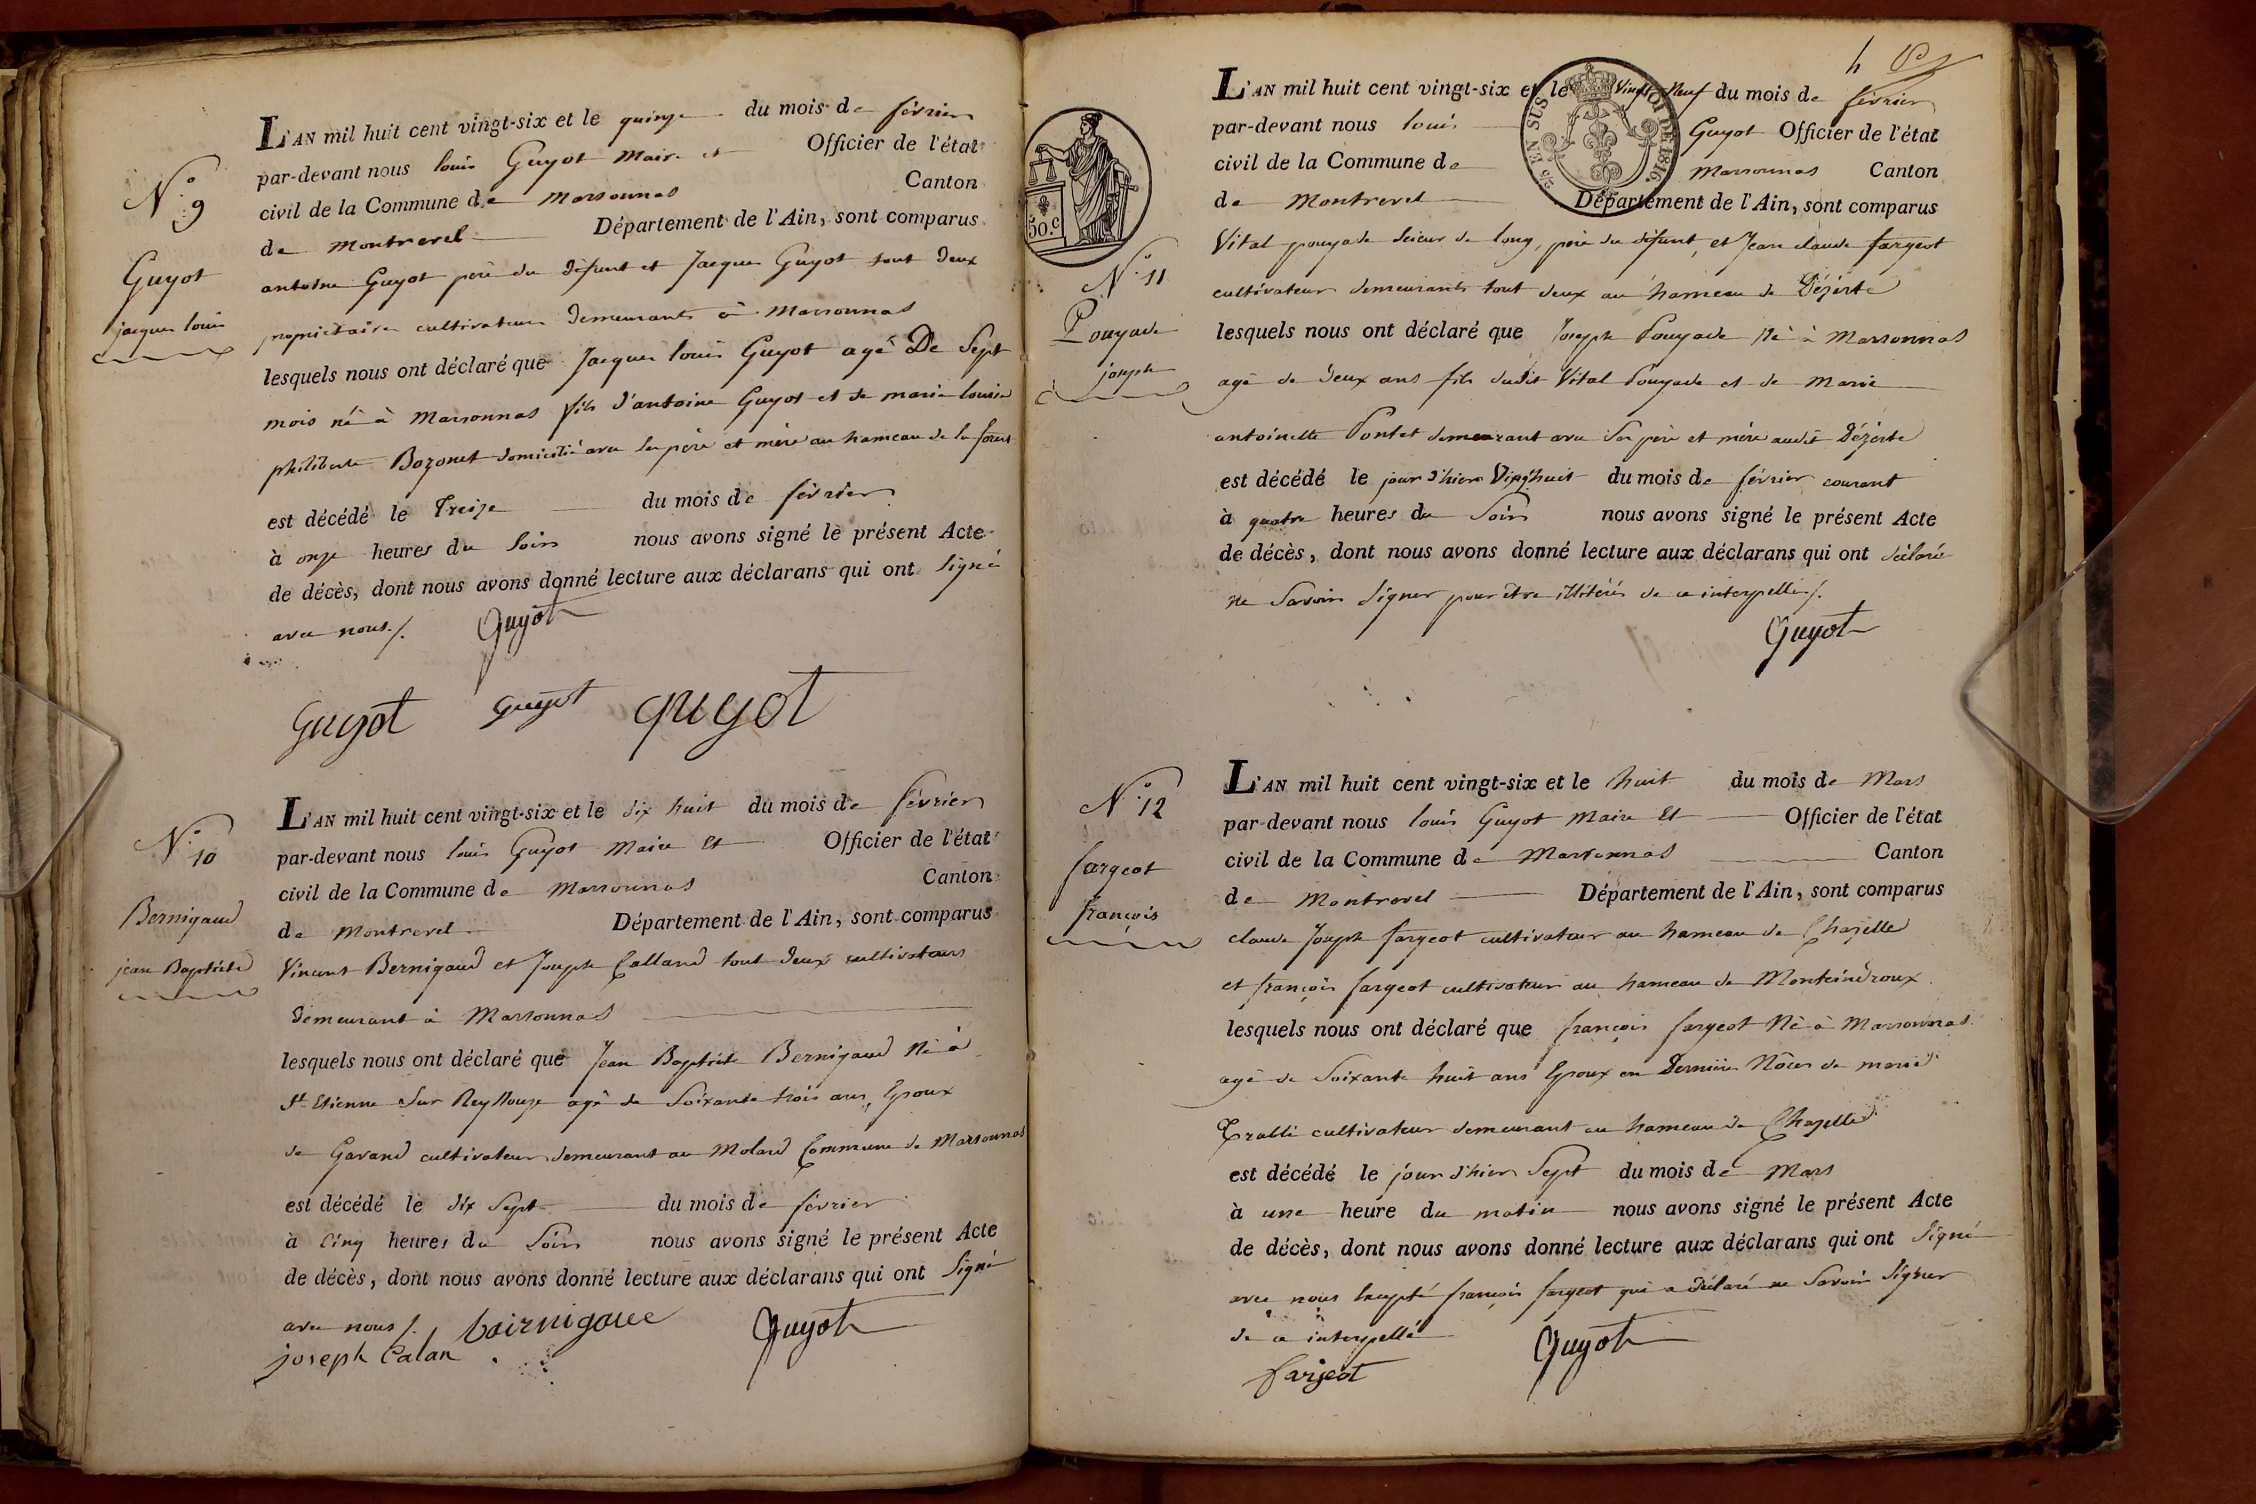 N.° 9
Guyot
jacques louis
L'AN mil huit cent vingt-six et le quinze du mois de février
par-devant nous louis Guyot Maire et Officier de l'état
civil de la Commune de Marsonnas Canton
de Montrevel Département de l'Ain, sont comparus
antoine Guyot père du défunt et Jacques Guyot tout deux
propriétaires cultivateurs demeurants à Marsonnas
lesquels nous ont déclaré que Jacques louis Guyot agé De Sept
mois né à Marsonnas fils d'antoine Guyot et de marie louise
philiberte Bozonet domicilié avec les père et mère au hameau de la
est décédé le Treize du mois de février
à onze heures du Soir nous avons signé le présent Acte
de décès, dont nous avons donné lecture aux déclarans qui ont Signé
avec nous ./. Guyot
Guyot guyot guyot
N.° 10
Bernigaud
jean Baptiste
L'AN mil huit cent vingt-six et le dix huit du mois de février
par-devant nous louis Guyot Maire Et Officier de l'état
civil de la Commune de Marsonnas Canton
de Montrevel Département de l'Ain, sont comparus
Vincent Bernigaud et Joseph Calland tout deux cultivateurs
demeurant à Marsonnas
lesquels nous ont déclaré que Jean Baptiste Bernigaud Né à
St. Etienne Sur Reyssouze agé de Soixante trois ans, Epoux
de Gavand cultivateur demeurant au Molard Commune de Marsonnas
est décédé le dix Sept du mois de février
à Cinq heures du Soir nous avons signé le présent Acte
de décès, dont nous avons donné lecture aux déclarans qui ont Signé
avec nous ./. bairnigaue Guyot
joseph Calan
4
50.C
EN SUS
LOI DE 1816
N.° 11
Pouyade
joseph
L'AN mil huit cent vingt-six et le Vingt Neuf du mois de février
par-devant nous louis Guyot Officier de l'état
civil de la Commune de Marsonnas Canton
de Montrevel Département de l'Ain, sont comparus
Vital pouyade Scieur de long, père du défunt, et Jean claude fargeot
cultivateur demeurants tout deux au hameau de Dézerte
lesquels nous ont déclaré que Joseph Pouyade Né à Marsonnas
agé de deux ans fils dudit Vital Pouyade et de Marie
antoinette Pontet demeurant avec Ses père et mère audit Dézerte
est décédé le jour d'hier Vingt huit du mois de février courant
à quatre heures du Soir nous avons signé le présent Acte
de décès, dont nous avons donné lecture aux déclarans qui ont déclaré
ne Savoir Signer pour être illitérés de ce interpellés ./.
Guyot
N.° 12
fargeot
françois
L'AN mil huit cent vingt-six et le huit du mois de Mars
par-devant nous louis Guyot Maire Et Officier de l'état
civil de la Commune de Marsonnas Canton
de Montrevel Département de l'Ain, sont comparus
claude Joseph fargeot cultivateur au hameau de Chazelle
et françois fargeot cultivateur au hameau de Monteindroux
lesquels nous ont déclaré que françois fargeot Né à Marsonnas
agé de Soixante huit ans Epoux en Dernière Nôces de marie
cultivateur demeurant au hameau de Chazelle
est décédé le jour d'hier Sept du mois de Mars
à une heure du matin nous avons signé le présent Acte
de décès, dont nous avons donné lecture aux déclarans qui ont Signé
avec nous Excepté françois fargeot qui a déclaré ne Savoir Signer
de ce interpellé Guyot
fargeot